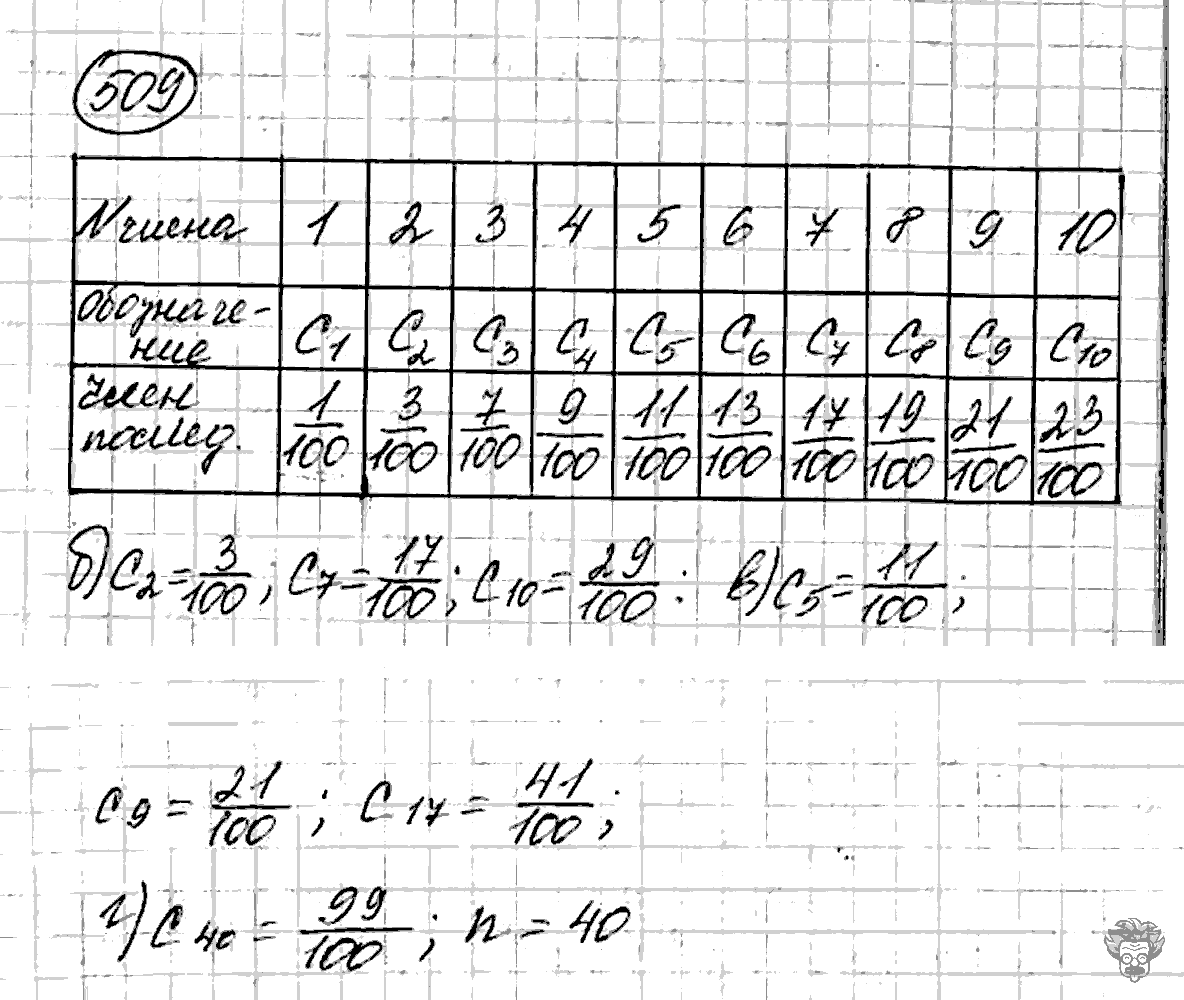 509
N члена 1 2 3 4 5 6 7 8 9 10
обозначе-
ние C₁ C₂ C₃ C₄ C₅ C₆ C₇ C₈ C₉ C₁₀
член
послед. 1/100 3/100 7/100 9/100 11/100 13/100 17/100 19/100 21/100 23/100
б) C₂ = 3/100; C₇ = 17/100; C₁₀ = 29/100: в) C₅ = 11/100;
C₉ = 21/100; C₁₇ = 41/100;
г) C₄₀ = 99/100; n = 40